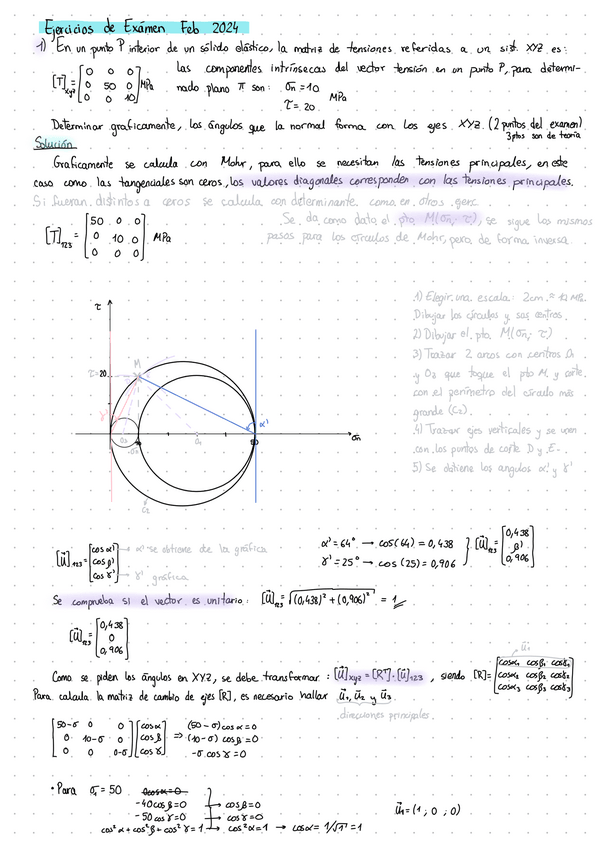 Ejercicios de Exámen Feb 2024
1) En un punto P interior de un sólido elástico, la matriz de tensiones referidas a un sist. XYZ es:
[T]xyz = [0 0 0
0 50 0
0 0 10] MPa
las componentes intrínsecas del vector tensión en un punto P, para determi-
nado plano π son: σn = 10
τ = 20 MPa
Determinar graficamente, los ángulos que la normal forma con los ejes XYZ. (2 puntos del examen)
3 ptos son de teoría
Solución
Graficamente se calcula con Mohr, para ello se necesitan las tensiones principales, en este
caso como las tangenciales son ceros, los valores diagonales corresponden con las tensiones principales.
Si fueran distintos a ceros se calcula con determinante como en otros
Se da como dato el pto M(σn; τ), se sigue los mismos
pasos para los círculos de Mohr, pero de forma inversa.
[T]123 = [50 0 0
0 10 0
0 0 0] MPa
1) Elegir una escala: 2cm =
Dibujar los círculos y sus centros.
2) Dibujar el pto M(σn; τ)
3) Trazar 2 arcos con centros O1
y O3 que toque el pto M y corte
con el perímetro del círculo más
grande (C2).
4) Trazar ejes verticales y se unen
con los puntos de corte D y E.
5) Se obtiene los angulos α' y γ'
τ
τ=20
M
γ'
α'
O3
O1
σn
C2
[u]123 = [cos α'
cos β'
cos γ'] → α' se obtiene de la gráfica
→ γ' gráfica
α' = 64° → cos(64) = 0,438
γ' = 25° → cos (25) = 0,906
[u]123 = [0,438
β'
0,906]
Se comprueba si el vector es unitario: [u]123 = √(0,438)² + (0,906)² = 1
[u]123 = [0,438
0
0,906]
Como se piden los ángulos en XYZ, se debe transformar: [u]xyz = [Rᵀ]·[u]123, siendo [R] = [cosα1 cosβ1 cosγ1
cosα2 cosβ2 cosγ2
cosα3 cosβ3 cosγ3]
u1
Para calcula la matriz de cambio de ejes [R], es necesario hallar u1, u2 y u3
direcciones principales.
[50-σ 0 0
0 10-σ 0
0 0 0-σ] [cosα
cosβ
cosγ] ⇒ (50-σ)cosα=0
(10-σ) cosβ=0
-σ cosγ=0
• Para σ1 = 50 0cosα=0
-40cosβ=0 → cosβ=0
-50cosγ=0 → cosγ=0
cos²α+cos²β+cos²γ=1 → cos²α=1 → cosα=1/√1=1
u1=(1; 0; 0)